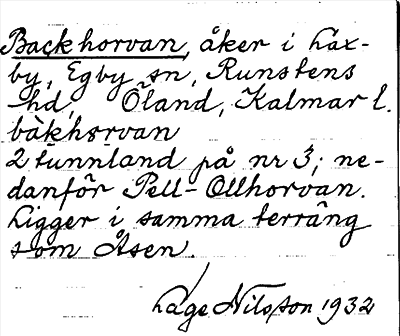 Backhorvan, åker i Lax-
by, Egby sn, Runstens
hd, Öland, Kalmar l.
bàkhorvan
2 tunnland på nr 3; ne-
danför Pell-Ollhorvan.
Ligger i samma terräng
som Åsen.
Lage Nilsson 1932